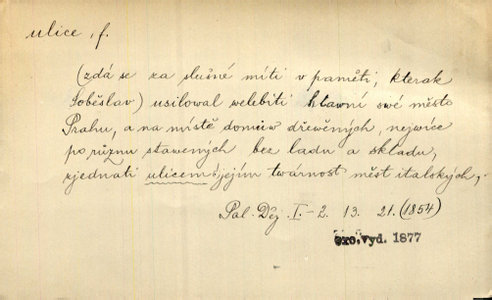 ulice, f.
(zdá se za slušné míti v paměti, kterak
Soběslav) usilowal welebiti hlawní swé město
Prahu, a na místě domůw dřewěných, nejwíce
po různu stawených bez ladu a skladu,
zjednati ulicem jejím twárnost měst italských,
Pal. Děj. I.-2. 13. 21. (1854)
vyd. 1877